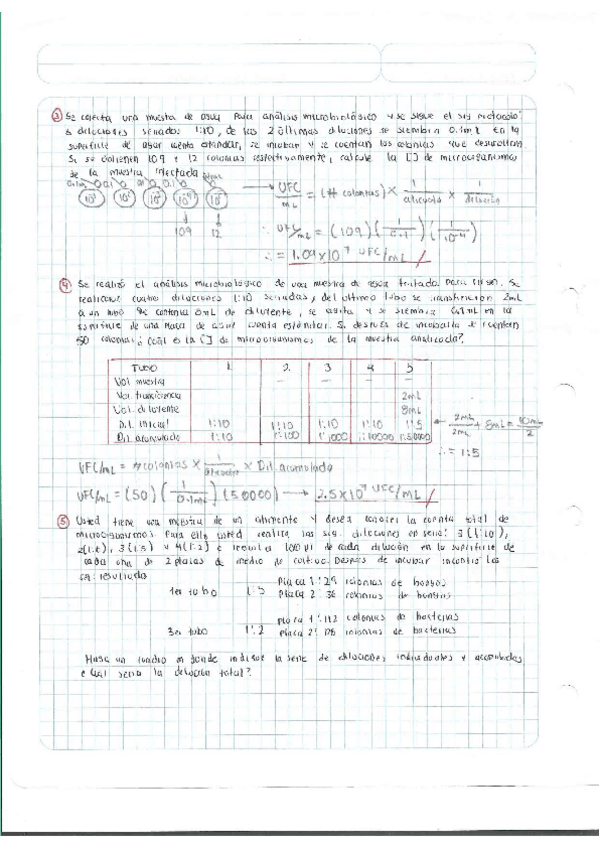 ③ Se colecta una muestra de agua para análisis microbiológico y se sigue el sig protocolo:
5 diluciones seriadas 1:10, de las 2 últimas diluciones se siembra 0.1mL en la
superficie de agar cuenta estándar, se incuban y se cuentan las colonias que desarrollan
Si se obtienen 109 y 12 colonias respectivamente, calcule la [] de microorganismos
de la muestra
0.1 0.1
109 12
UFC/mL = (# colonias) × 1/alícuota × 1/dilución
∴ UFC/mL = (109) (1/0.1) (1/10⁻⁴)
∴ = 1.09×10⁷ UFC/mL
④ Se realizó el análisis microbiológico de una muestra de agua tratada para Se
realizaron cuatro diluciones 1:10 seriadas, del último tubo se transfirieron 2mL
a un tubo que contenía 8mL de diluyente, se agita y se siembra 0.1mL en la
superficie de una placa de agar cuenta estándar. Si después de incubarla se cuentan
50 colonias, ¿cuál es la [] de microorganismos de la muestra analizada?
TUBO 1 2 3 4 5
Vol muestra — — — —
Vol. transferencia 2mL
Vol. diluyente 8mL
Dil. inicial 1:10 1:10 1:10 1:10 1:5
Dil. acumulada 1:10 1:100 1:1000 1:10000 1:50000
← 2mL/2mL + 8mL = 10mL/2
∴ = 1:5
UFC/mL = # colonias × 1/alícuota × Dil. acumulada
UFC/mL = (50) (1/0.1mL) (50000) → 2.5×10⁷ UFC/mL
⑤ Usted tiene una muestra de un alimento y desea conocer la cuenta total de
microorganismos. Para ello usted realiza las sig. diluciones en serie: 3(1:10),
3(1:5) y 4(1:2) e inocula 100 µl de cada dilución en la superficie de
cada una de 2 placas de medio de cultivo. Después de incubar los
resultados
1er tubo 1:5 Placa 1: 29 colonias de hongos
Placa 2: 36 colonias de hongos
3er tubo 1:2 placa 1: 112 colonias de bacterias
placa 2: 128 colonias de bacterias
Haga un cuadro en donde indique la serie de diluciones individuales y acumuladas
¿Cuál sería la dilución total?